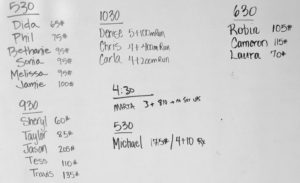 530
Dida 65#
Phil 75#
Bethanie 95#
Sonia 95#
Melissa 95#
Jamie 100#
930
Sheryl 60#
Taylor 85#
Jason 205#
Tess 110#
Travis 135#
1030
Denise 5+100m Run
Chris 4+400m Run
Carla 4+200m Run
4:30
MARTA 3+810
530
Michael 175#/4+10 Rx
630
Robin 105#
Cameron 115#
Laura 70#